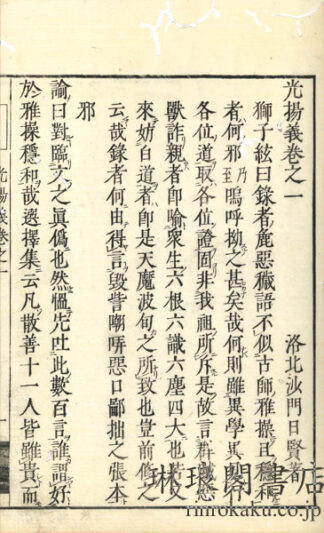 光揚義卷之一
洛北沙門日賢著
獅子絃曰錄者麁惡穢語不似古師雅操且穩和
者何邪乃至嗚呼拗之甚矣哉何則雖異學異
各位道取各位證固非我祖所斥是故言群賊惡
獸詐親者卽喻衆生六根六識六塵四大也若又
來妨白道者卽是天魔波旬之所致也豈前脩之
云哉錄者何由得言毀訾嘲哢惡口鄙拙之張本
邪
諭曰對臨文之眞僞也然慍光吐此數百言誰謂好
於雅操穩和哉選擇集云凡散善十一人皆雖貴而
光揚義卷之一
琳琅閣書店
rinrokaku.co.jp